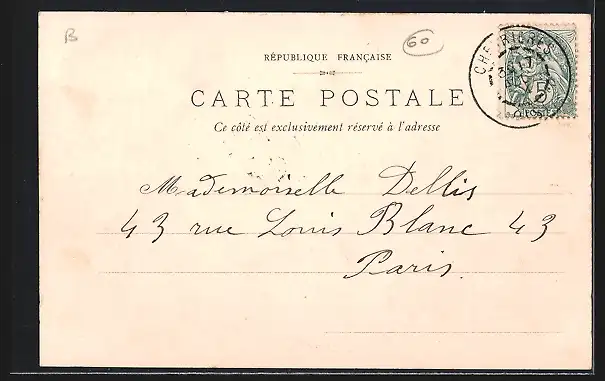 B
60
RÉPUBLIQUE FRANÇAISE
CARTE POSTALE
Ce côté est exclusivement réservé à l'adresse
5
POSTES
Mademoiselle Dellis
43 rue Louis Blanc 43
Paris.